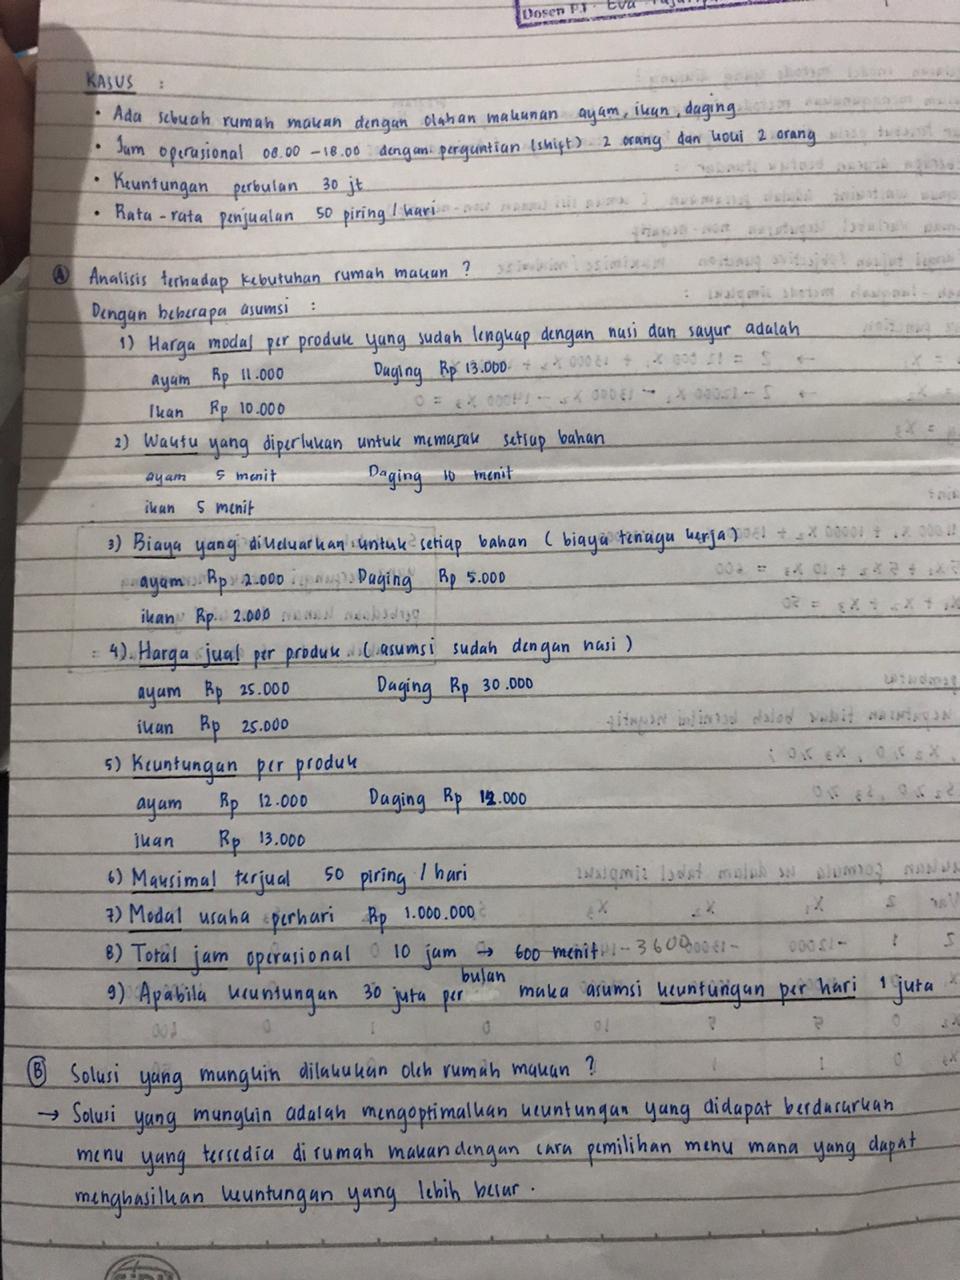 Dosen P.J. Eva
KASUS :
• Ada sebuah rumah makan dengan olahan makanan ayam, ikan, daging
• Jam operasional 08.00 - 18.00 dengan pergantian (shift) 2 orang dan koki 2 orang
• Keuntungan perbulan 30 jt
• Rata-rata penjualan 50 piring / hari
Ⓐ Analisis terhadap kebutuhan rumah makan ?
Dengan beberapa asumsi :
1) Harga modal per produk yang sudah lengkap dengan nasi dan sayur adalah
ayam Rp 11.000 Daging Rp 13.000
Ikan Rp 10.000
2) Waktu yang diperlukan untuk memasak setiap bahan
ayam 5 menit Daging 10 menit
ikan 5 menit
3) Biaya yang dikeluarkan untuk setiap bahan ( biaya tenaga kerja )
ayam Rp 2.000 Daging Rp 5.000
ikan Rp. 2.000
4). Harga jual per produk. ( asumsi sudah dengan nasi )
ayam Rp 25.000 Daging Rp 30.000
ikan Rp 25.000
5) Keuntungan per produk
ayam Rp 12.000 Daging Rp 12.000
ikan Rp 13.000
6) Maksimal terjual 50 piring / hari
7) Modal usaha perhari Rp 1.000.000
8) Total jam operasional 10 jam → 600 menit - 3600
bulan
9) Apabila keuntungan 30 juta per maka asumsi keuntungan per hari 1 juta
Ⓑ Solusi yang mungkin dilakukan oleh rumah makan ?
→ Solusi yang mungkin adalah mengoptimalkan keuntungan yang didapat berdasarkan
menu yang tersedia di rumah makan dengan cara pemilihan menu mana yang dapat
menghasilkan keuntungan yang lebih besar.